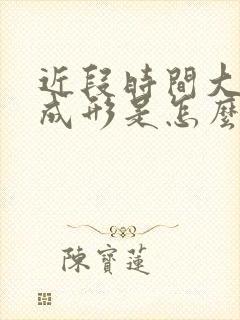 近段時間大
成形是怎麼
陳寶蓮